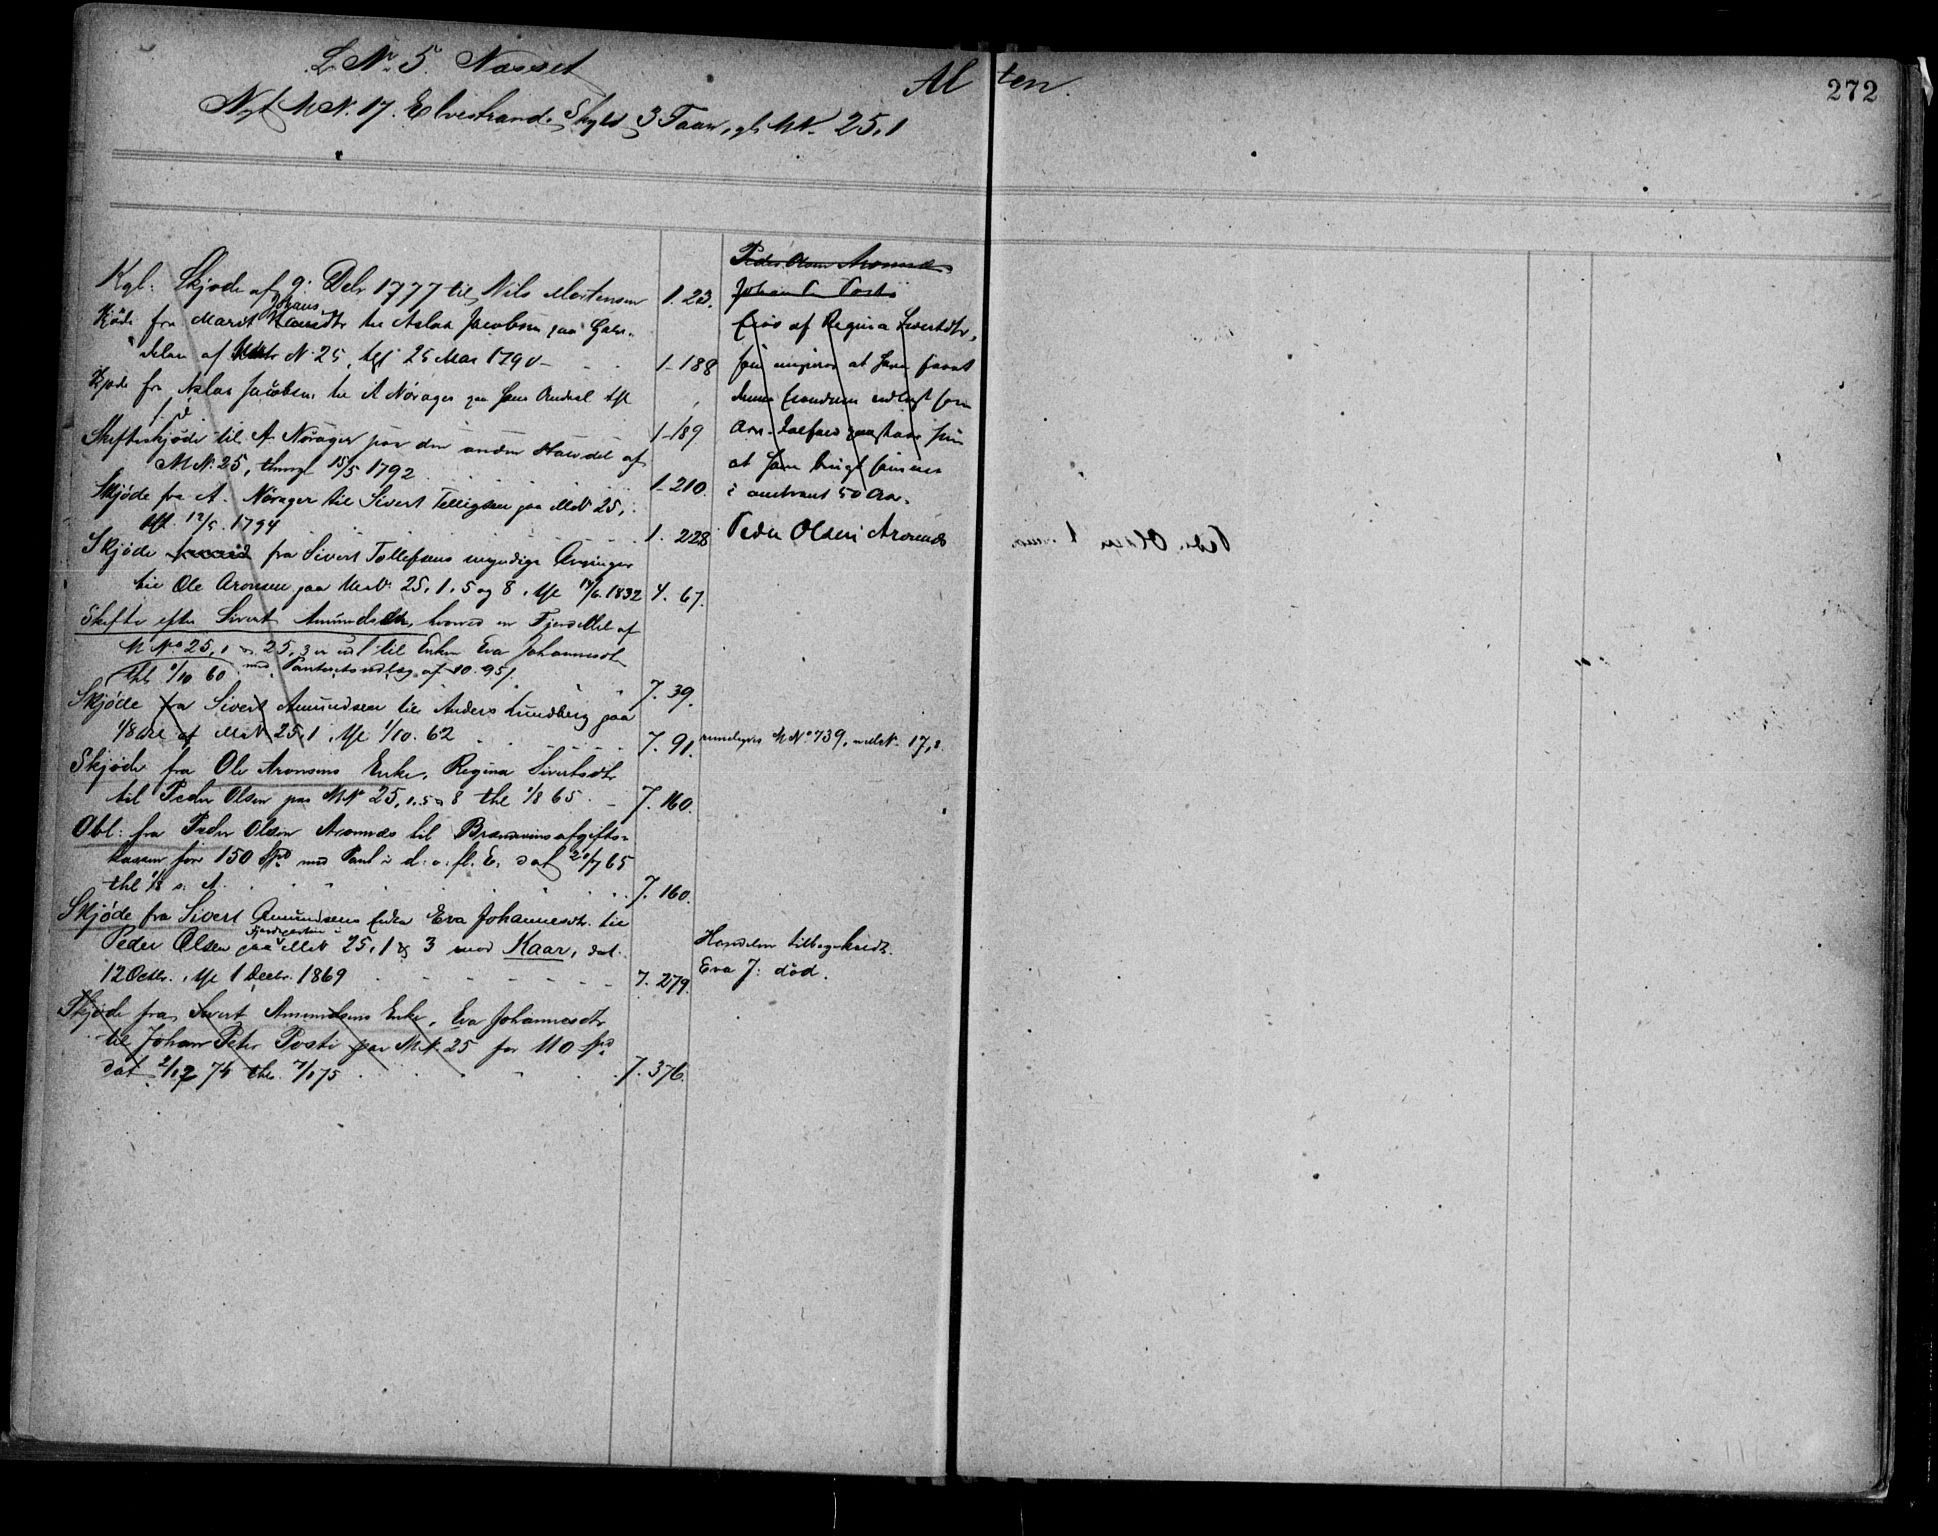 L. No 5. Næsset
Alten.
272
Nyt M.N. 17. Elvestrand. Skyld 3 Faar, gl. M.N. 25,1
Kgl. Skjøde af 9. Debr 1777 til Nils Mortensen 1. 23.
Skjøde fra Marit Johansdtr til Aslak Jacobsen paa Halv-
delen af Matr N. 25, tgl 25 Mai 1790 - - - 1-188
Skjøde fra Aslak Jacobsen til A Nørager paa Halv Andeel tgl
1-189
Skifteskjøde til A. Nørager paa den anden Halvdel af
M.N. 25, thingl 15/5 1792 1-210.
Skjøde fra A. Nørager til Sivert Tollefsen paa M.N. 25,
tgl. 12/5. 1794 1. 228
Skjøde fra Sivert Tollefsens myndige Arvinger
til Ole Aronsen paa M.N. 25, 1, 5 og 8, tgl 14/6. 1832 4. 67.
Skifte efter Sivert Amundsen, hvorved en Fjerdedel af
M No 25,1 og 25,3 er udl til Enken Eva Johannesdtr
thl 1/10 60 med Panteretsudlæg af 10. 95/ 7. 39.
Skjøde fra Sivert Amundsen til Anders Lundberg paa
1/8 del af M.N. 25,1, tgl 1/10. 62 7. 91.
Skjøde fra Ole Aronsens Enke, Regina Sivertsdtr
til Peder Olsen paa M.N. 25, 1, 5 & 8 thl 1/8 65 - 7. 160.
Obl: fra Peder Olsen Aronnæs til Brændevinsafgifts-
kassen for 150 Spd med Pant i d. o. fl. E. dat 20/7 65
thl 1/8 s. A. 7. 160.
Skjøde fra Sivert Amundsens Enke Eva Johannesdtr. til
Peder Olsen paa Fjerdeparten i M.N. 25, 1 & 3 mod Kaar, dat.
12 Octbr., tgl 1 Decbr. 1869 - - - 7. 279.
Skjøde fra Sivert Amundsens Enke, Eva Johannesdtr
til Johan Peter Posti paa M.N. 25 for 110 Spd
dat 2/12 74 thl. 7/1 75 7. 376.
Peder Olsen Aronnæs
Johan P. Posti
Eies af Regina Sivertsdtr,
som angiver at have faaet
denne Eiendom udlagt som
Arv
at have brugt samme
i omtrent 50 Aar.
Peder Olsen Aronnæs
rimeligvis M No 739, M.N. 17,2
Handelen tilbagekaldt.
Eva J: død.